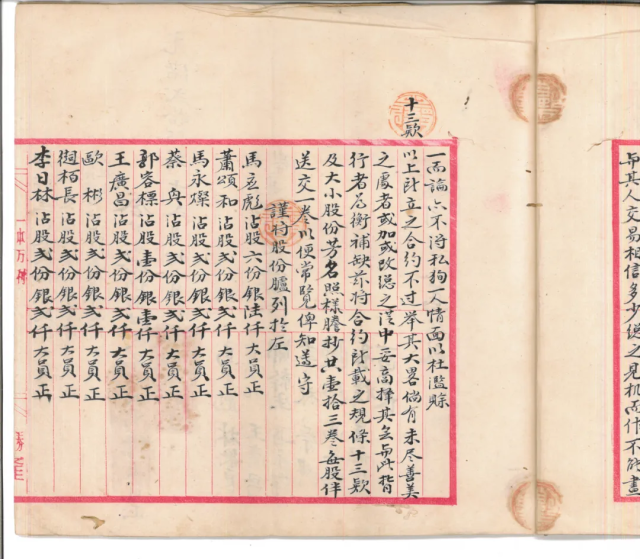 其人交易相信多少总之見机而作不能畫
一面論亦不得私狥人情面以杜濫賒
十三欵
以上所立之合約不过举其大畧倘有未尽善美
之處者或加或改总之從中妥商择其
行者 補缺茲将合約所載之規條十三欵
及大小股份芳名照樣謄抄共壹拾三卷每股伴
送交一卷以便常覽俾知遵守
謹将股份臚列於左
馬立彪沾股六份銀陸仟大員正
蕭頌和沾股弍份銀弍仟大員正
馬永燦沾股弍份銀弍仟大員正
蔡 沾股弍份銀弍仟大員正
郭容標沾股壹份銀壹仟大員正
王廣昌沾股弍份銀弍仟大員正
歐彬沾股弍份銀弍仟大員正
栢長沾股弍份銀弍仟大員正
李日林沾股弍份銀弍仟大員正
一本万利